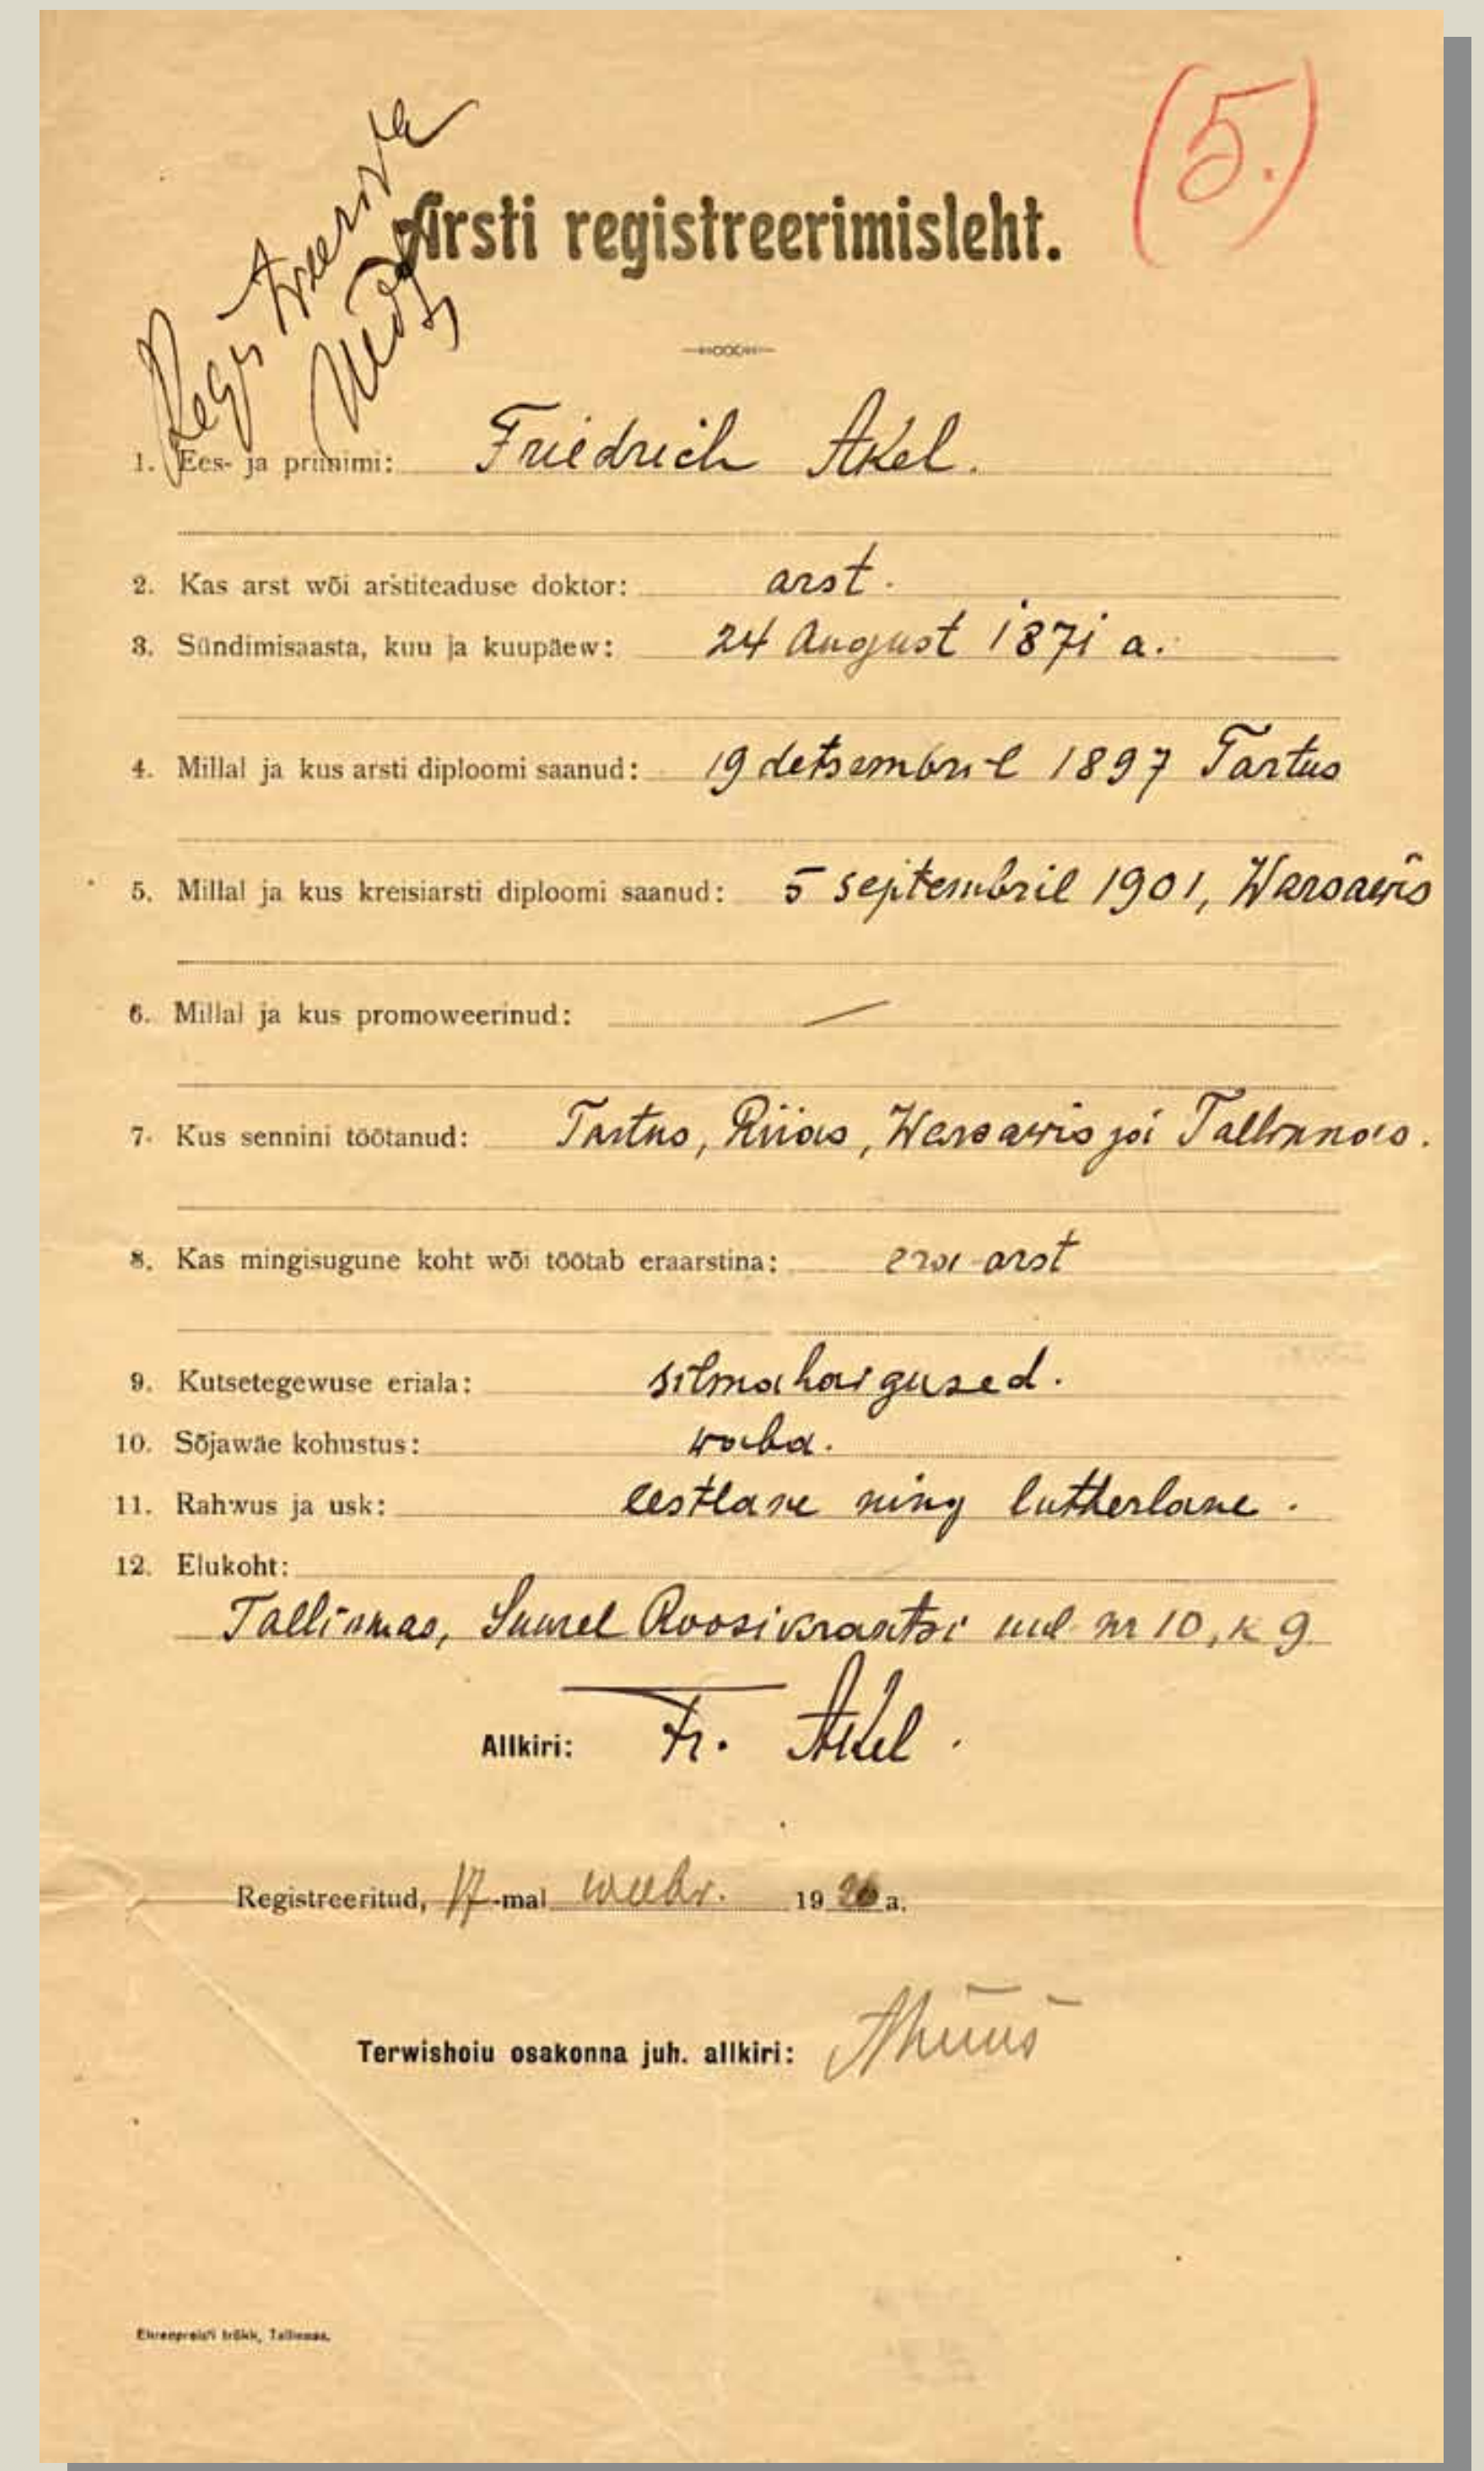 (5.)
Registreerida
Arsti registreerimisleht.
1. Ees- ja priinimi: Friedrich Akel.
2. Kas arst wõi arstiteaduse doktor: arst.
3. Sündimisaasta, kuu ja kuupäew: 24 August 1871 a.
4. Millal ja kus arsti diploomi saanud: 19 detsembril 1897 Tartus
5. Millal ja kus kreisiarsti diploomi saanud: 5 septembril 1901, Warsawis
6. Millal ja kus promoweerinud: —
7. Kus sennini töötanud: Tartus, Riias, Warsawis ja Tallinnas.
8. Kas mingisugune koht wõi töötab eraarstina: era-arst
9. Kutsetegewuse eriala: silmahaigused.
10. Sõjawäe kohustus: waba.
11. Rahwus ja usk: eestlane ning lutherlane.
12. Elukoht:
Tallinnas, Suurel Roosikrantsi uul nr 10, k 9.
Allkiri: Fr. Akel.
Registreeritud, 17-mal weebr. 1920 a.
Terwishoiu osakonna juh. allkiri:
Ehrenpreis'i trükk, Tallinnas.